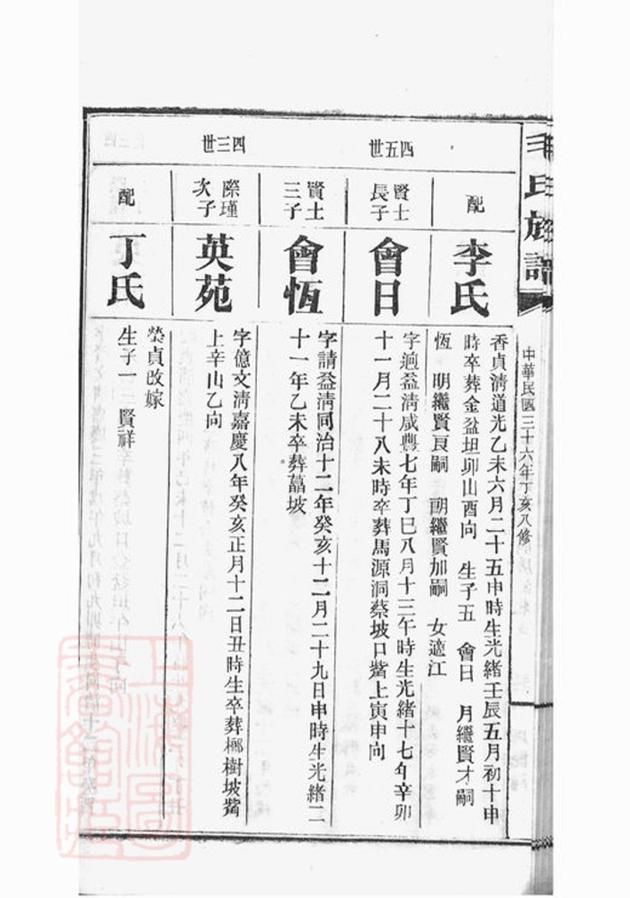 毛氏族譜
中華民國三十六年丁亥八修
配
李氏
香貞清道光乙未六月二十五申時生光緒壬辰五月初十申
時卒葬金盆坦卯山酉向 生子五 會日 月繼賢才嗣
恆 明繼賢良嗣 朗繼賢加嗣 女適江
四五世
賢士
長子
會日
字迥益清咸豐七年丁巳八月十三午時生光緒十七年辛卯
十一月二十八未時卒葬馬源洞蔡坡口嘴上寅申向
賢士
三子
會恆
字請益清同治十二年癸亥十二月二十九日申時生光緒二
十一年乙未卒葬藠坡
四三世
際瑾
次子
英苑
字億文清嘉慶八年癸亥正月十二日丑時生卒葬榔樹坡嘴
上辛山乙向
配
丁氏
榮貞改嫁
生子一 賢祥